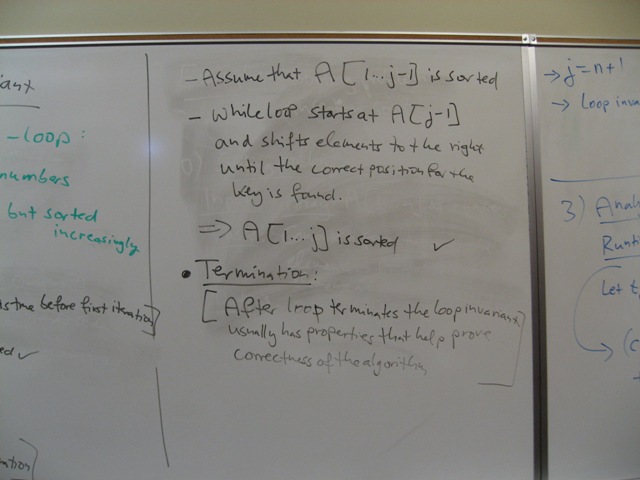 iant
-loop:
numbers
but sorted
increasingly
is true before first iteration]
ed ✓
ration]
- Assume that A[1...j-1] is sorted
- While loop starts at A[j-1]
and shifts elements to the right
until the correct position for the
key is found.
=> A[1...j] is sorted ✓
• Termination:
[After loop terminates the loop invariant
usually has properties that help prove
correctness of the algorithm]
→ j=n+1
→ Loop inva
3) Anal
Runti
Let t
→ (c